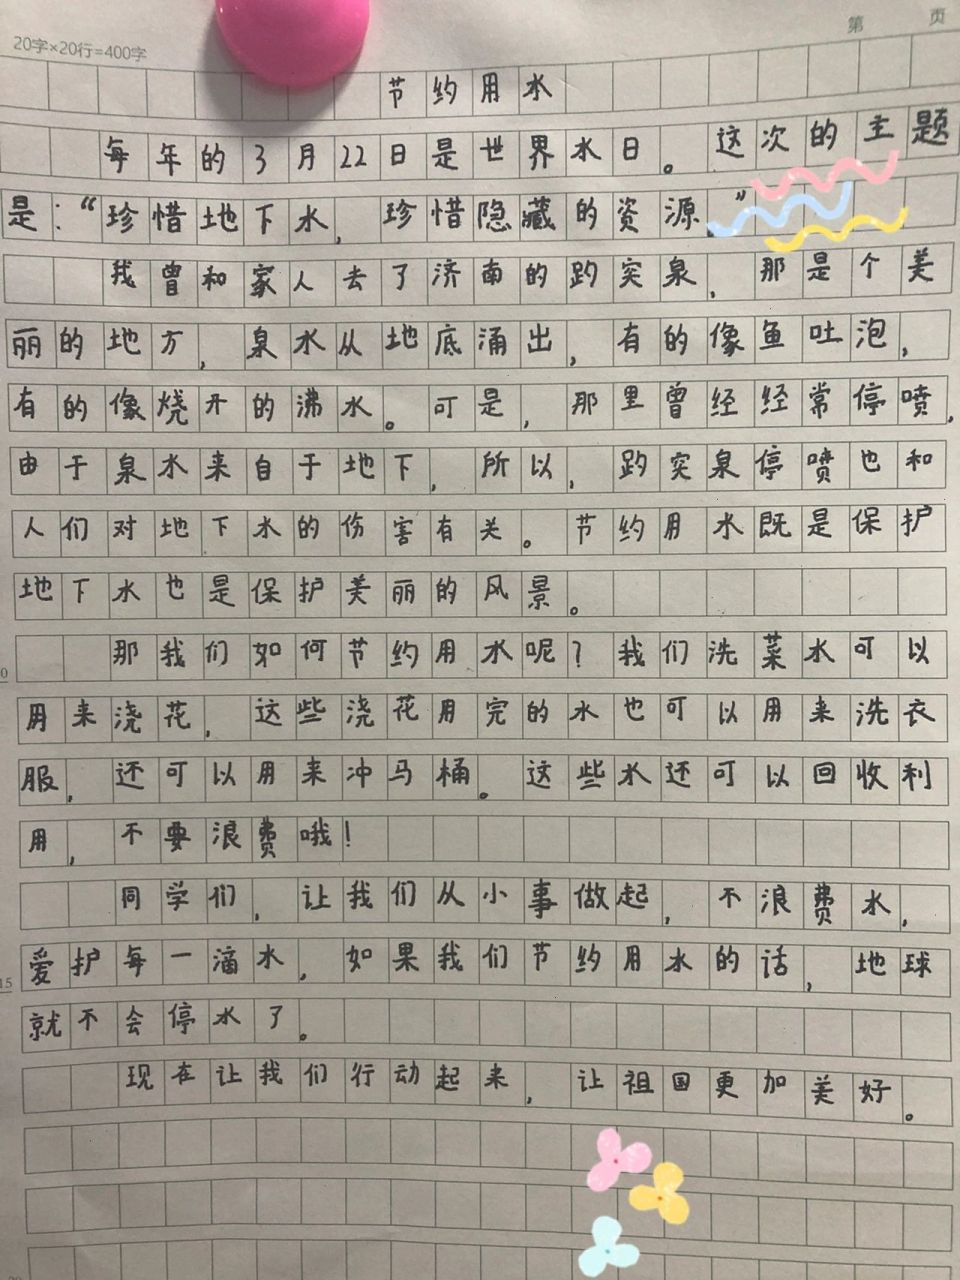 第 页
20字×20行=400字
节约用水
每年的3月22日是世界水日。这次的主题
是:“珍惜地下水,珍惜隐藏的资源”
我曾和家人去了济南的趵突泉,那是个美
丽的地方,泉水从地底涌出,有的像鱼吐泡,
有的像烧开的沸水。可是,那里曾经经常停喷,
由于泉水来自于地下,所以,趵突泉停喷也和
人们对地下水的伤害有关。节约用水既是保护
地下水也是保护美丽的风景。
那我们如何节约用水呢?我们洗菜水可以
用来浇花,这些浇花用完的水也可以用来洗衣
服,还可以用来冲马桶。这些水还可以回收利
用,不要浪费哦!
同学们,让我们从小事做起,不浪费水,
爱护每一滴水,如果我们节约用水的话,地球
15
就不会停水了。
现在让我们行动起来,让祖国更加美好。